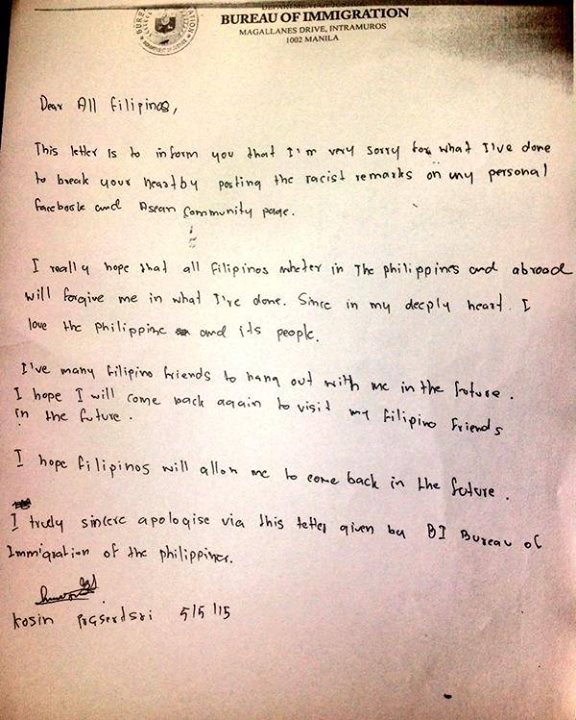 BUREAU OF IMMIGRATION
MAGALLANES DRIVE, INTRAMUROS
1002 MANILA
Dear All Filipinos,
This letter is to inform you that I'm very sorry for what I've done
to break your heart by posting the racist remarks on my personal
facebook and Asean Community page.
I really hope that all filipinos wheter in The philippines and abroad
will forgive me in what I've done. Since in my deeply heart. I
love the Philippine and its people.
I've many filipino friends to hang out with me in the future.
I hope I will come back again to visit my Filipino friends
in the future.
I hope filipinos will allow me to come back in the future.
I truly sincere apologise via this letter given by BI Bureau of
Immigration of the philippines.
Kosin Prasertsri 5/5/15